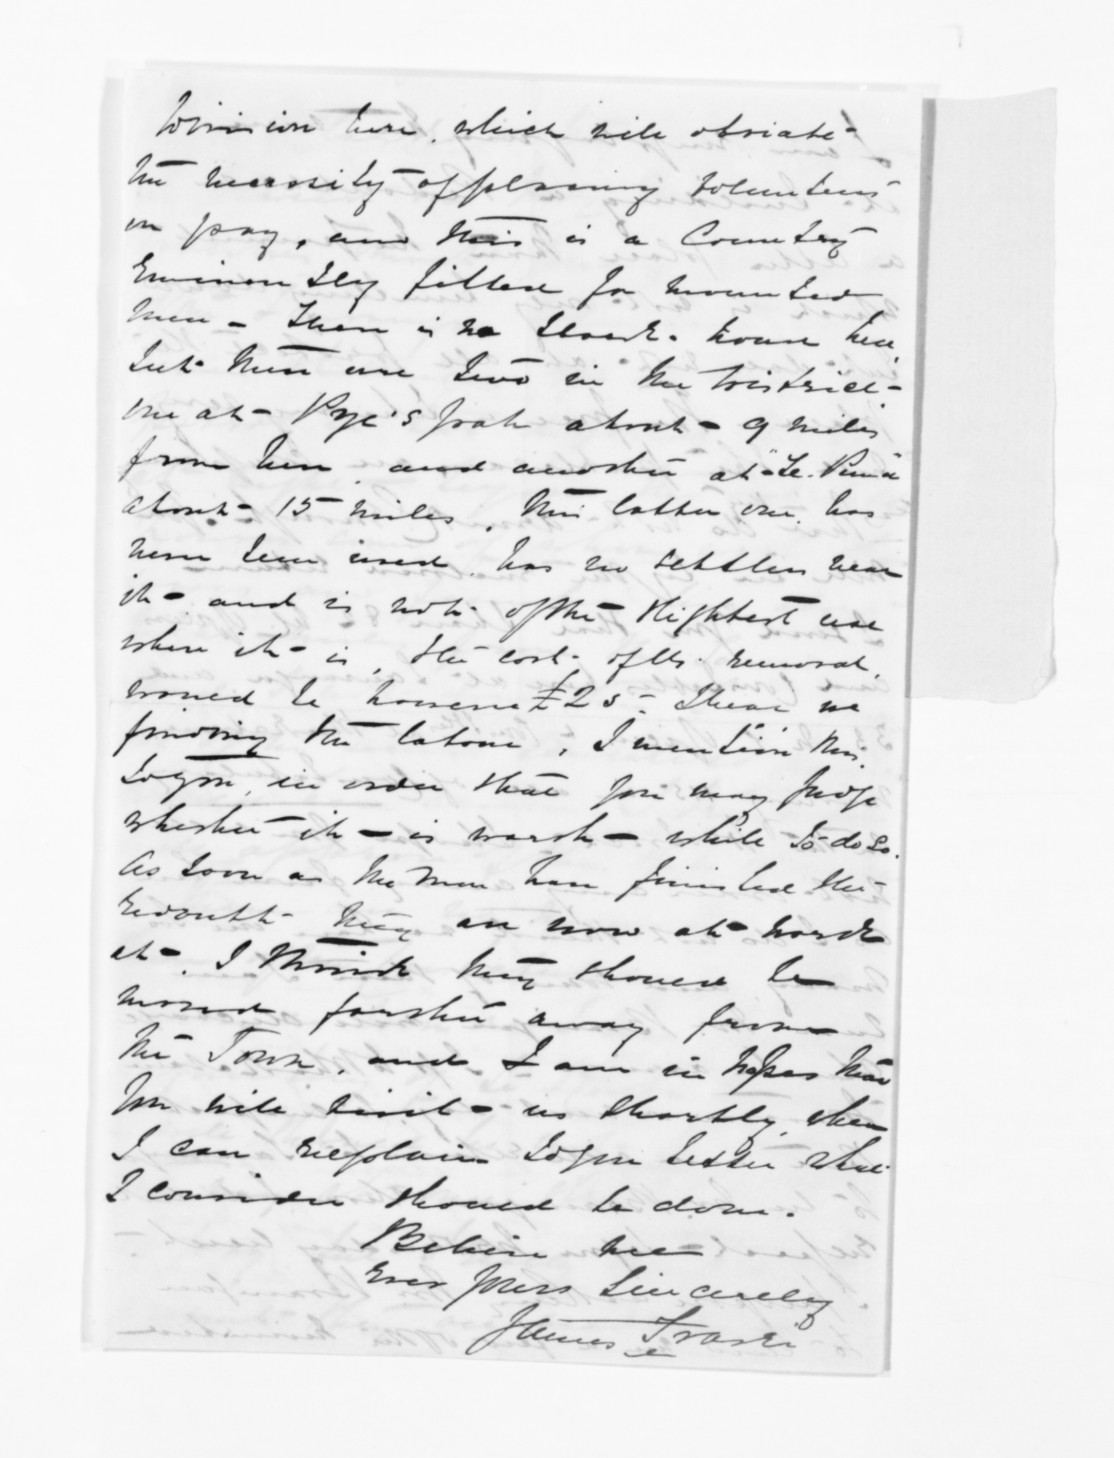 Division here, which will obviate
the necessity of placing Volunteers
on pay, and this is a Country
Eminently fitted for mounted
men - There is no Block-house here,
but there are two in the District -
one at Pye's pah about 9 miles
from here and another at "Te Puna"
about 15 miles, this latter one has
never been used, has no settlers near
it and is not of the slightest use
where it is, the cost of its removal
would be however £25 - these we
finding the labour, I mention this
to you in order that you may judge
whether it is worth while to do so.
As soon as the men have finished the
redoubt they are now at work
at, I think they should be
moved farther away from
the Town, and I am in hopes that
you will visit us shortly, when
I can explain to you better what
I consider should be done.
Believe me
Ever yours Sincerely
James Fraser